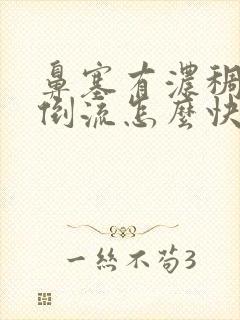 鼻塞有濃稠
倒流怎麼快
一絲不苟3